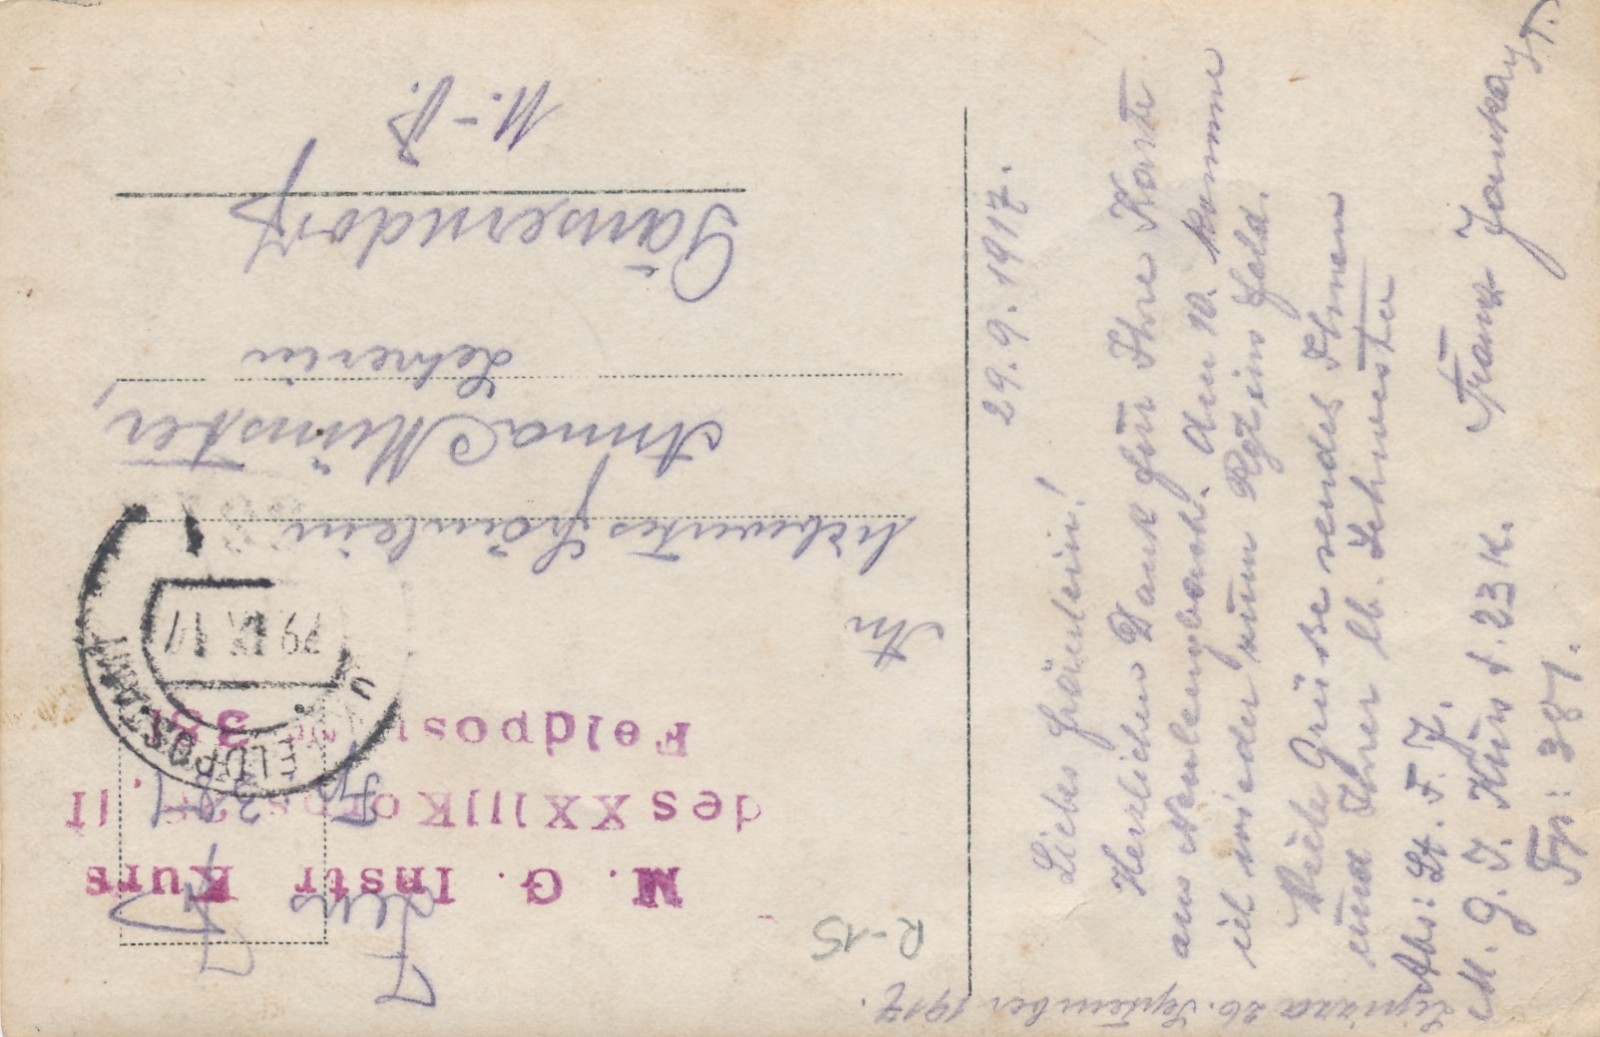 29.9.1917.
Liebes Fräulein!
Herzlichen Dank für Ihre Karte
aus Neulengbach. Am 10. komme
ich wieder zum Rgt ins Feld.
Viele Grüße sendet Ihnen
und Ihrer lb. Schwester
Franz Jankay Lt.
Abs: Lt. F. J.
M. G. I. Kurs d. 23 K.
Fp: 381.
Lipizza 26. September 1917.
M. G. Instr Kurs
des XXIII Korps
Feldpost 381
FELDPOSTAMT
29 IX 17
R-15
An
Fräulein
Anna Münster,
Lehrerin
Gänserndorf
N.-Ö.